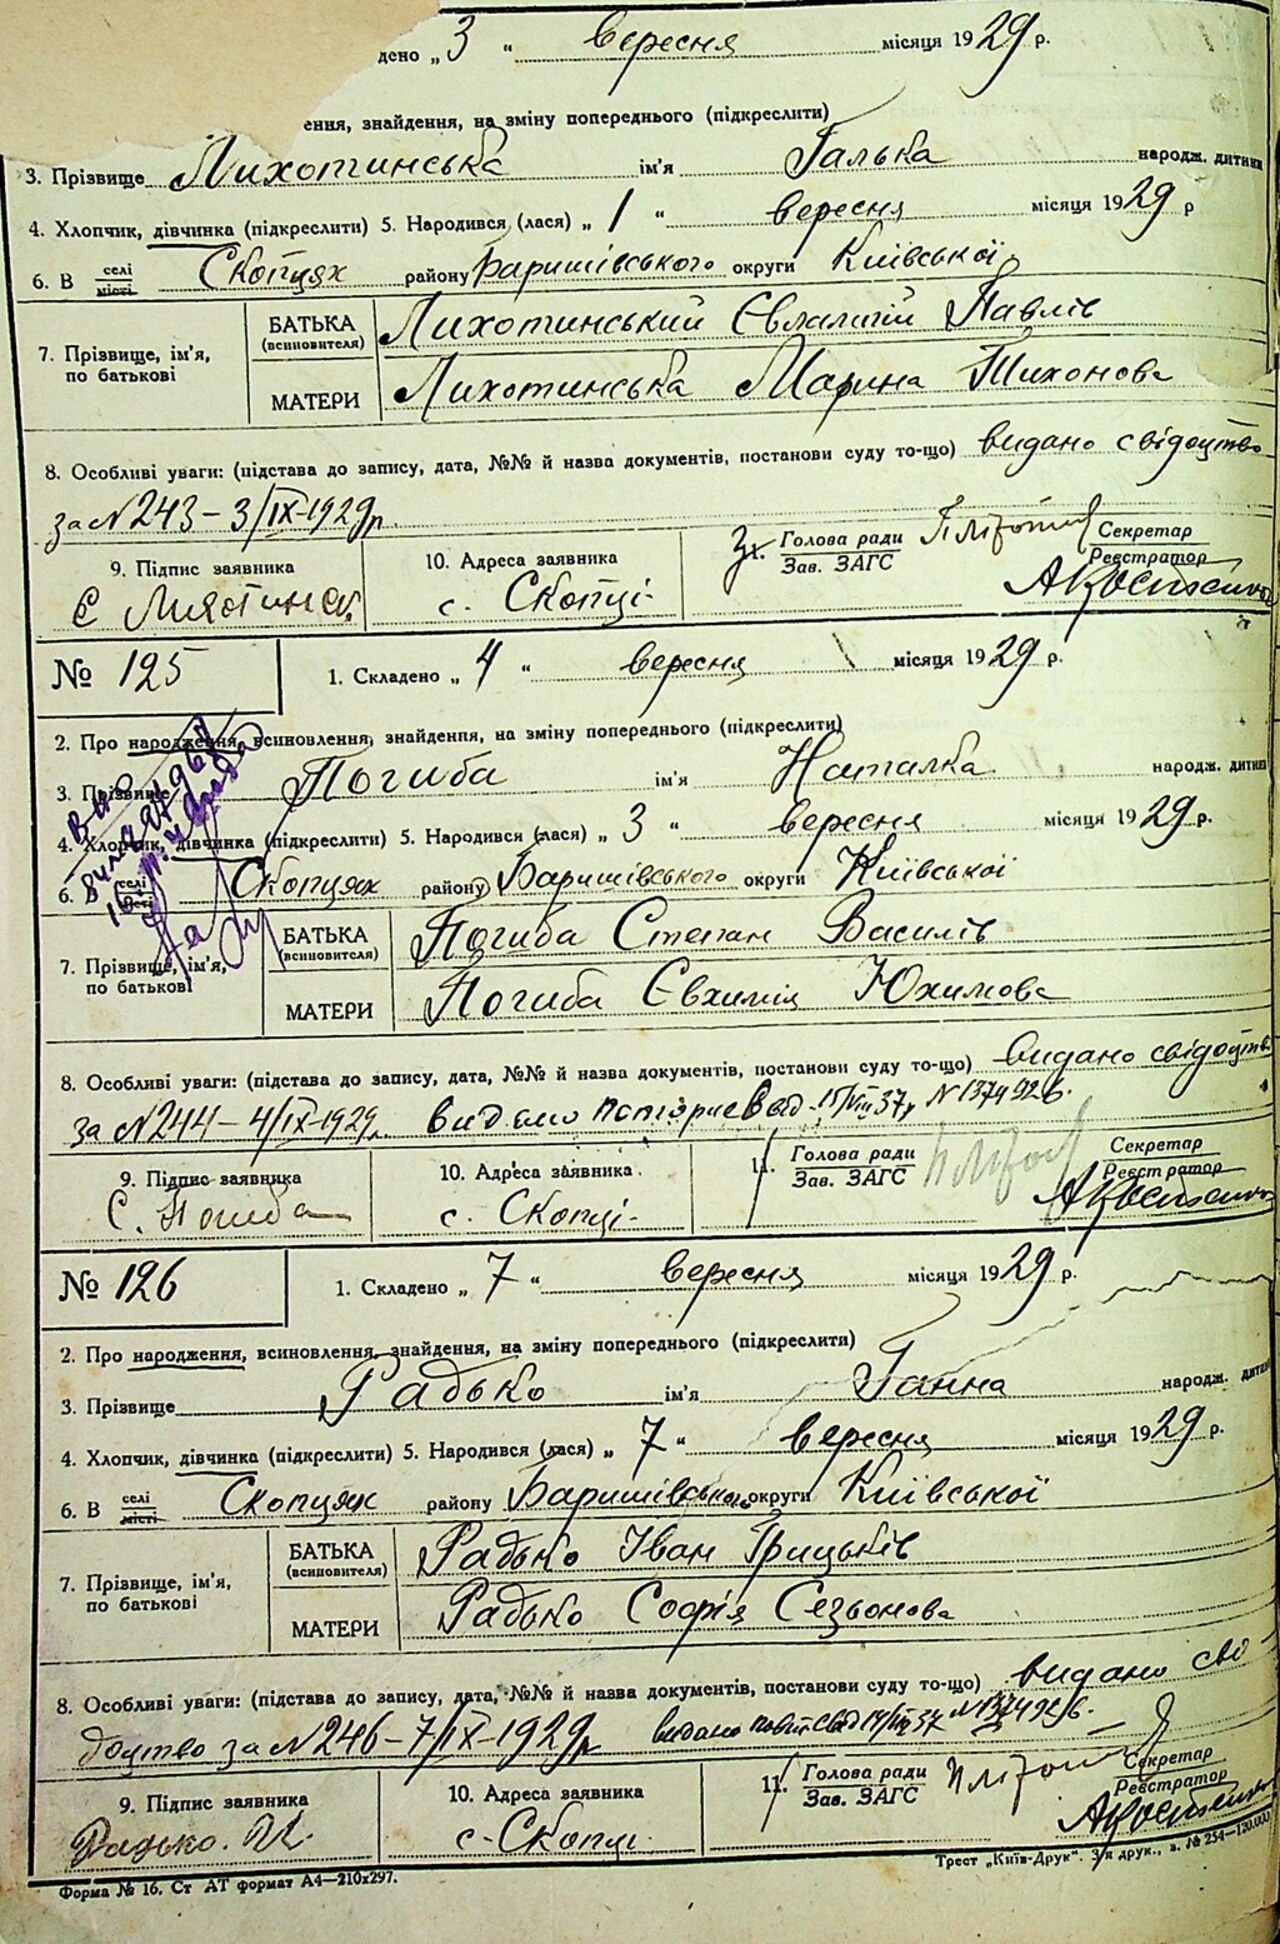 дено „ 3 “ вересня місяця 1929 р.
ення, знайдення, на зміну попереднього (підкреслити)
3. Прізвище Лихотинська ім'я Галька народж. дитини
4. Хлопчик, дівчинка (підкреслити) 5. Народився (лася) „ 1 “ вересня місяця 1929 р
6. В селі місті Скопцях району Баришівського округи Київської
7. Прізвище, ім'я, по батькові
БАТЬКА (всиновителя) Лихотинський Євлампій Павлів
МАТЕРИ Лихотинська Марина Тихонова
8. Особливі уваги: (підстава до запису, дата, №№ й назва документів, постанови суду то-що) видано свідоцтво
за №243 – 3/IX-1929р.
9. Підпис заявника 10. Адреса заявника 11. Голова ради Зав. ЗАГС Секретар Реєстратор
с. Скопці
№ 125 1. Складено „ 4 “ вересня місяця 1929 р.
2. Про народження, всиновлення, знайдення, на зміну попереднього (підкреслити)
3. Прізвище Погиба ім'я Наталка народж. дитини
4. Хлопчик, дівчинка (підкреслити) 5. Народився (лася) „ 3 “ вересня місяця 1929 р.
6. В селі місті Скопцях району Баришівського округи Київської
7. Прізвище, ім'я, по батькові
БАТЬКА (всиновителя) Погиба Степан Василів
МАТЕРИ Погиба Євхимія Юхимова
8. Особливі уваги: (підстава до запису, дата, №№ й назва документів, постанови суду то-що) видано свідоцтв
за №244 – 4/IX-1929р. видано 15/VIII 37р №1374926.
9. Підпис заявника 10. Адреса заявника 11. Голова ради Зав. ЗАГС Секретар Реєстратор
С. Погиба с. Скопці
№ 126 1. Складено „ 7 “ вересня місяця 1929 р.
2. Про народження, всиновлення, знайдення, на зміну попереднього (підкреслити)
3. Прізвище Радько ім'я Ганна народж. дитини
4. Хлопчик, дівчинка (підкреслити) 5. Народився (лася) „ 7 “ вересня місяця 1929 р.
6. В селі місті Скопцях району Баришівського округи Київської
7. Прізвище, ім'я, по батькові
БАТЬКА (всиновителя) Радько Іван Грицьків
МАТЕРИ Радько Софія Сезьонова
8. Особливі уваги: (підстава до запису, дата, №№ й назва документів, постанови суду то-що) видано сві
доцтво за №246 – 7/IX-1929р видано
9. Підпис заявника 10. Адреса заявника 11. Голова ради Зав. ЗАГС Секретар Реєстратор
Радько. с. Скопці
Форма № 16. Ст АТ формат А4—210x297. Трест „Київ-Друк“. 3-я друк., з. № 254—120.000